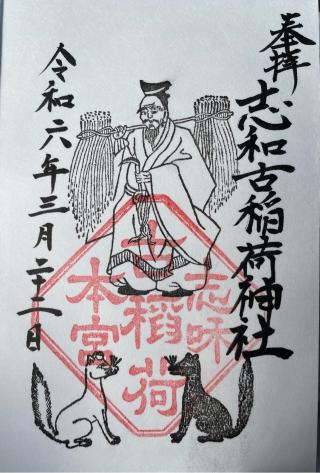 奉拝
志和古稲荷神社
志味
古稻荷
本宮
令和六年三月二十二日